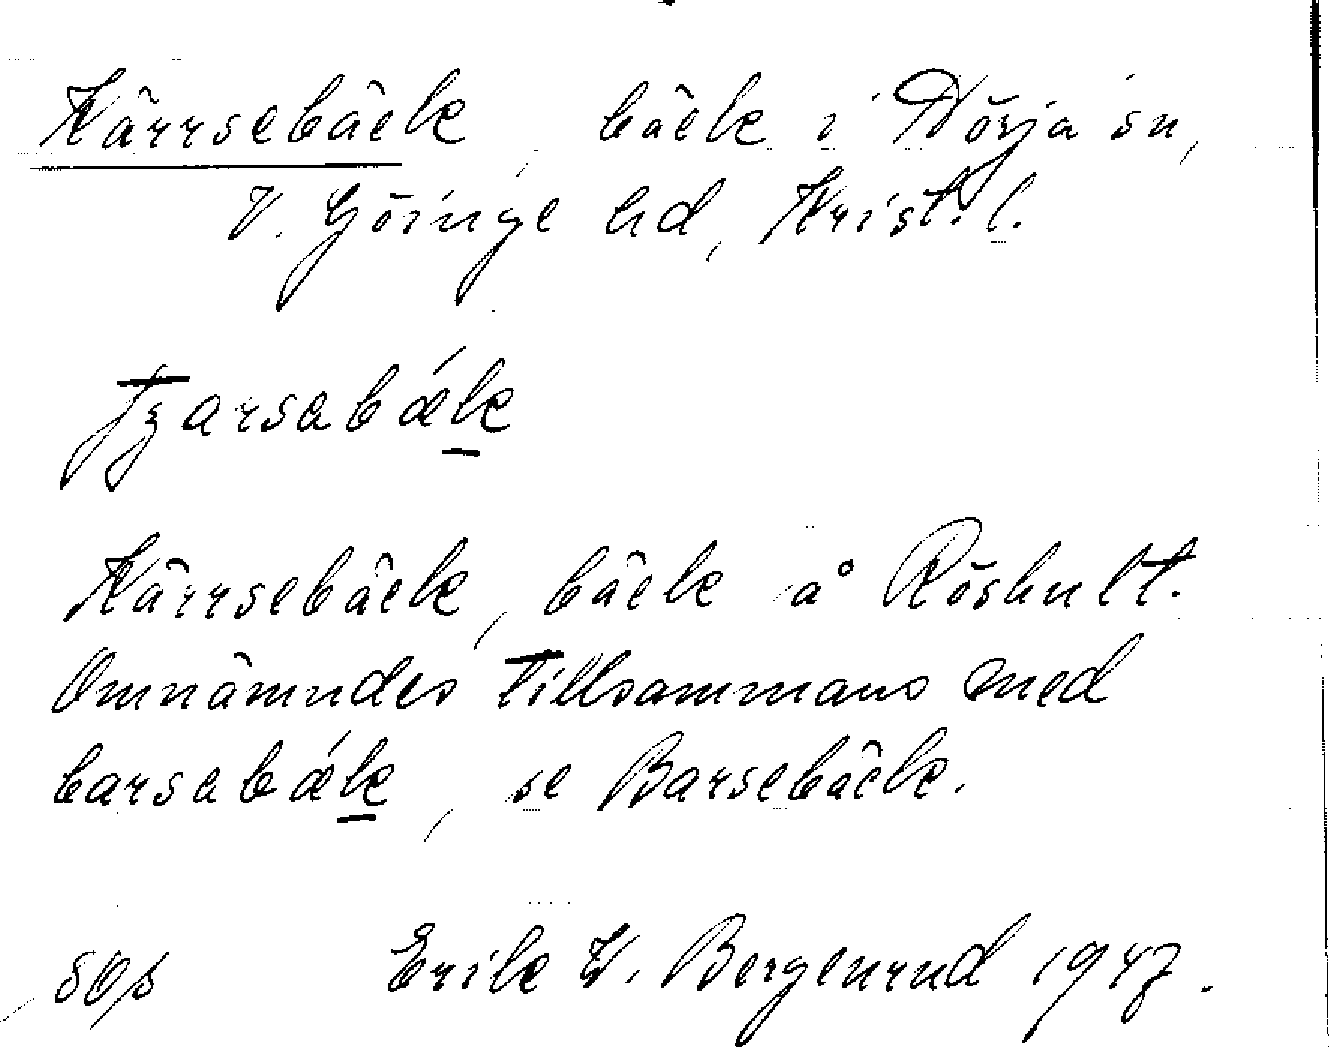 Kärrsebäck, bäck i Norja sn,
V. Göinge hd, Krist. l.
tʒarsabǽk
Kärrsebäck, bäck å Röshult.
Omnämndes tillsammans med
barsabǽk, se Barsebäck.
Erik W. Bergenrud 1947.